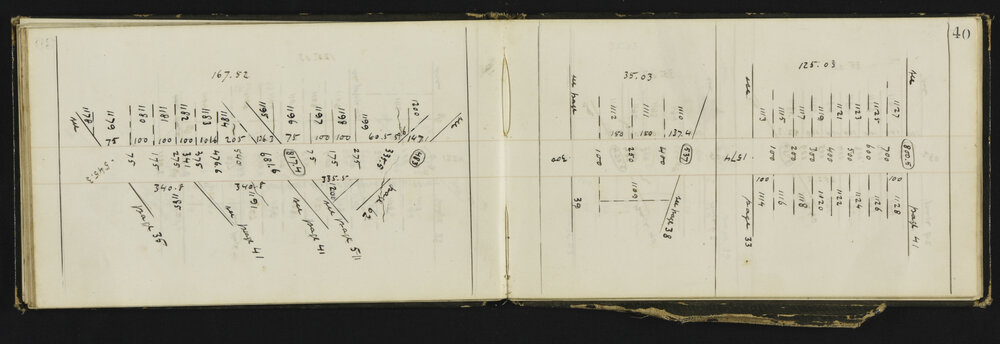 40
167.52
see 1178 1179 1180 1181 1182 1183 1184 1195 1196 1197 1198 1199 1200 see
75 100 100 100 101.6 205 126.3 75 100 100 60.5 147.1
545.3 75 175 275 341 375 476.6 540 681.6 817.4 75 175 275 335.5 483
340.8 340.4 335.5
1185 1191 1200
page 35 see page 41 see page 41 see page 511 page 62
35.03
see page 1112 1111 1110
150 150 137.4
300 100 250 400 537
39 1109 see page 38
125.03
see 1113 1115 1117 1119 1121 1123 1125 1127 see
157.4 100 200 300 400 500 600 700 800.5
100 100
page 33 1114 1116 1118 1120 1122 1124 1126 1128 page 41